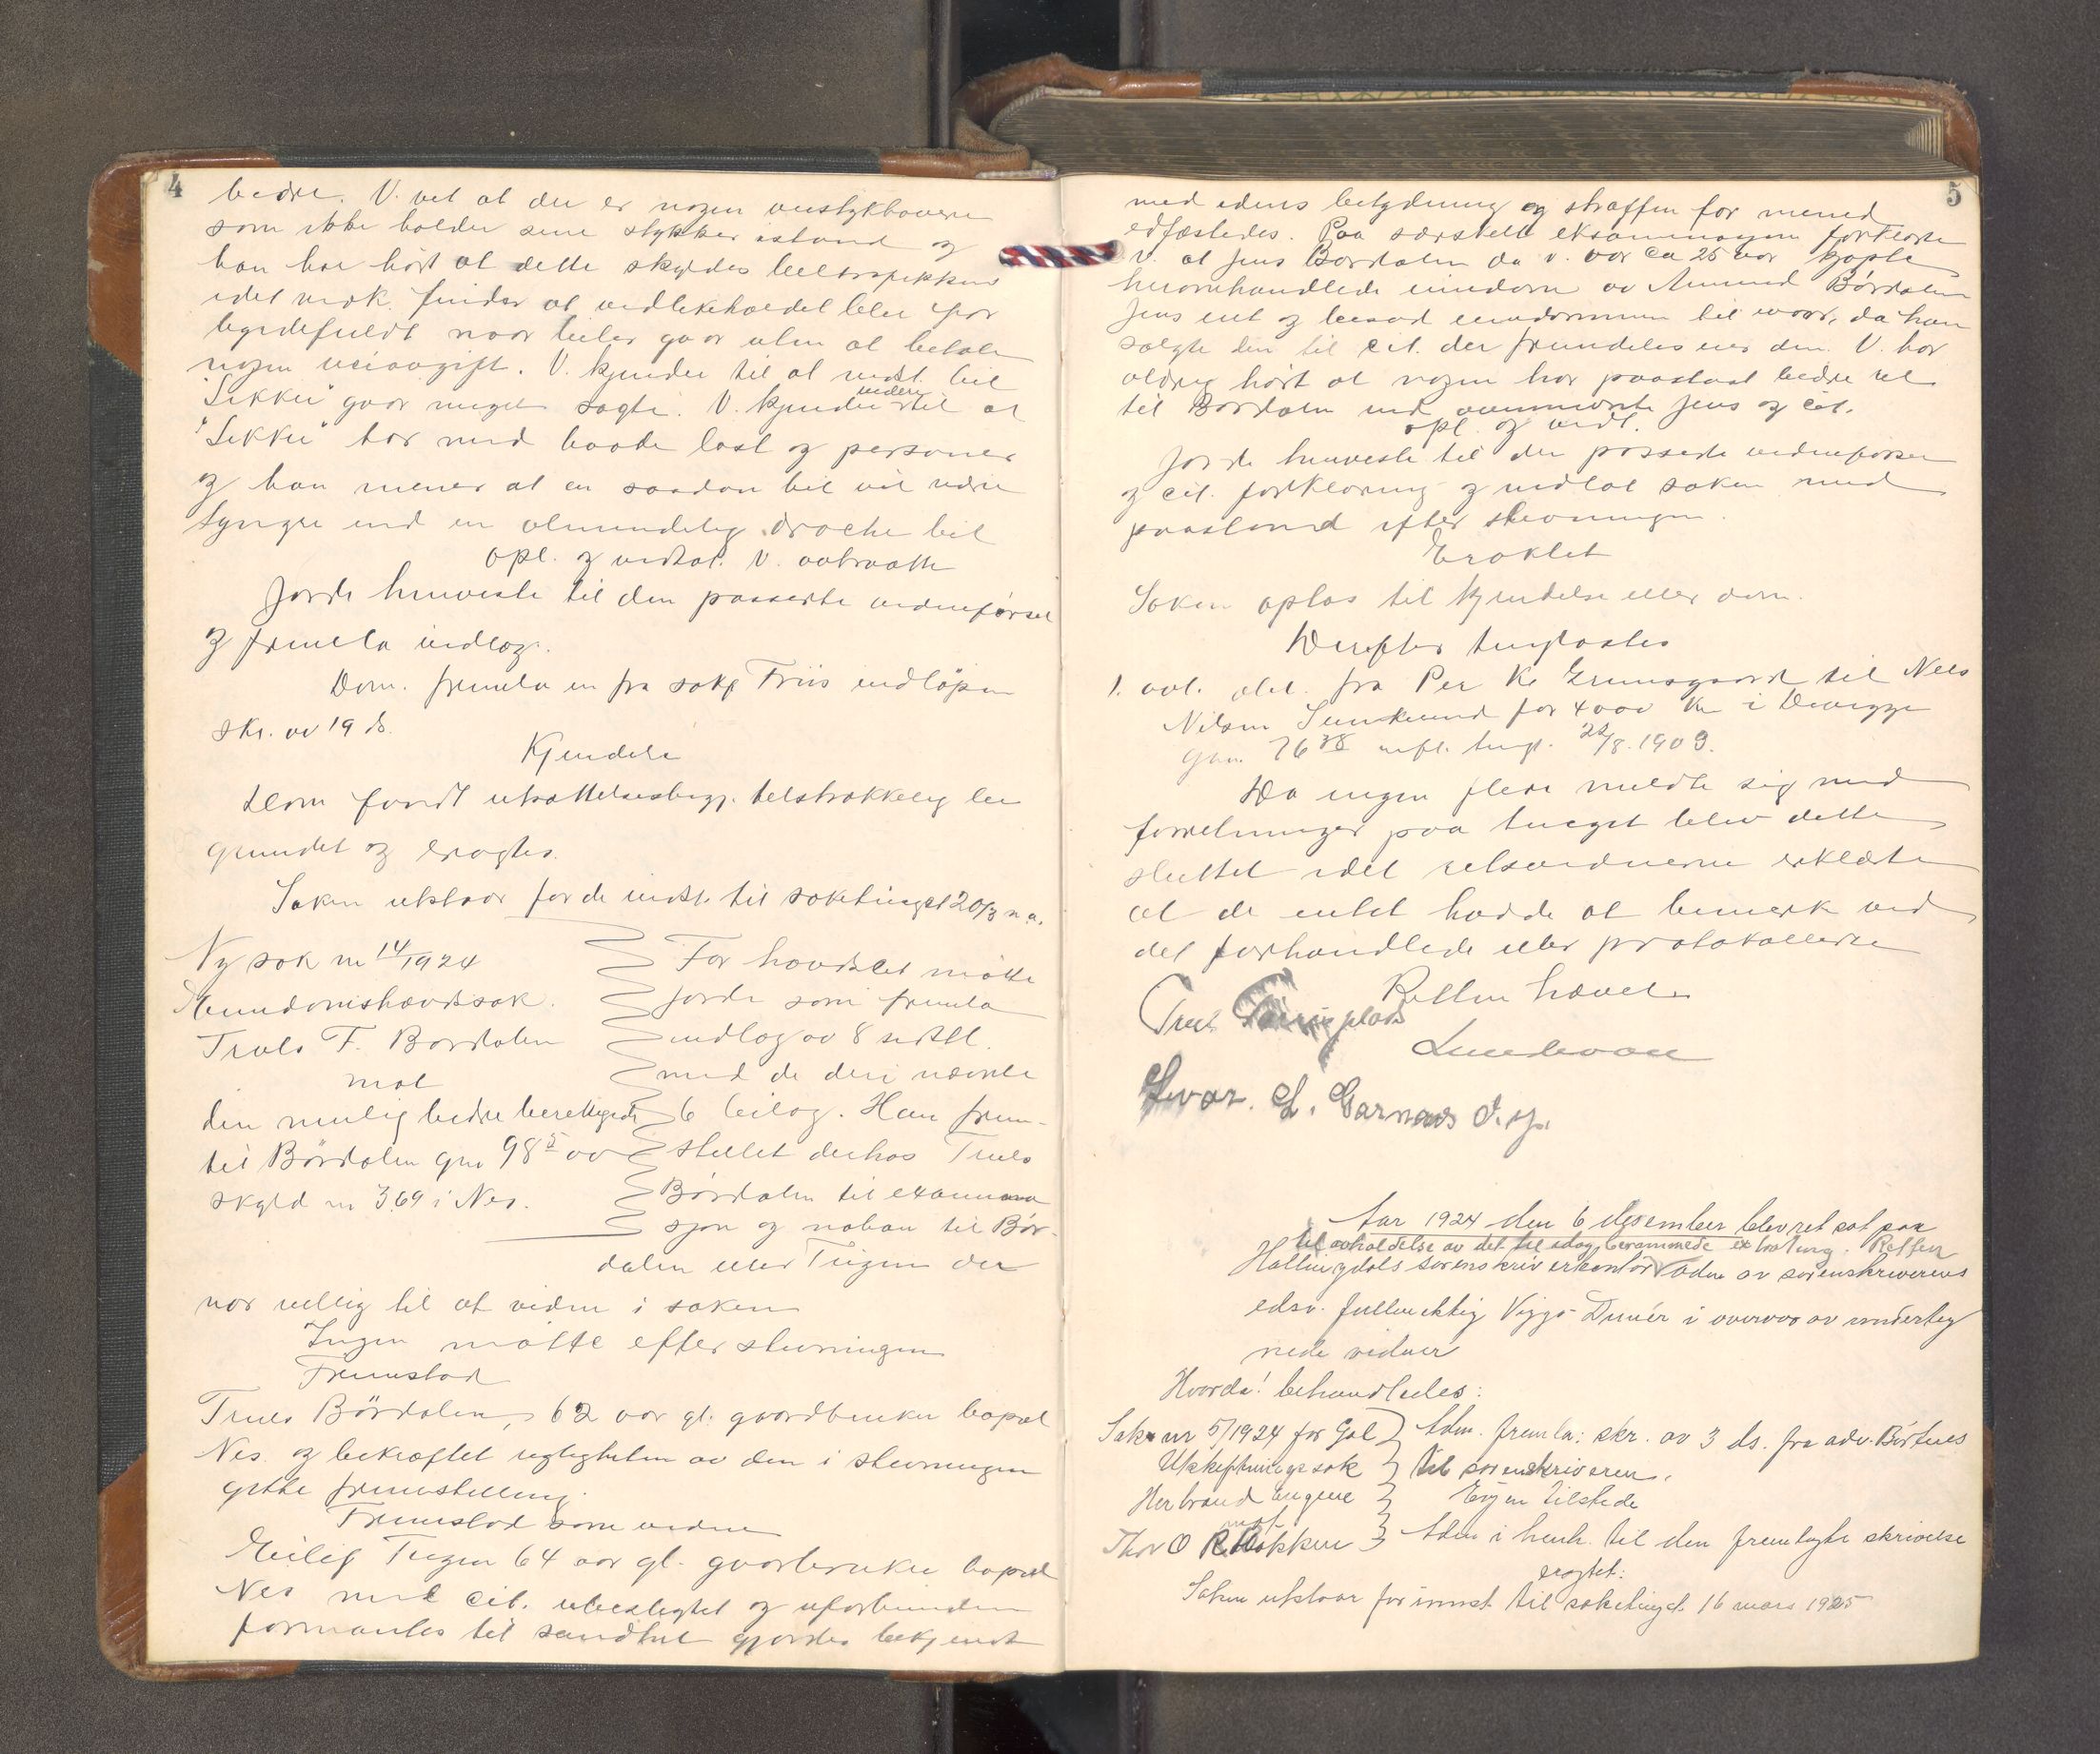 4
bedre. V. vet at der er nogen veistykkhavere
som ikke holder sine stykker istand og
han har hørt at dette skyldes biltrafikken
idet vedk. finder at vedlikeholdet blir for
byrdefuldt naar biler gaar uten at betale
nogen veiavgift. V. kjender til at indst. bil
"Sikker" gaar meget sagte. V. kjender videre til at
"Sikker" tar med baade last og personer
og han mener at en saadan bil vil være
tyngre end en almindelig drosche bil
opl. og vedtat. V. aatraatte
Jorde henviste til den passerte vidneførsel
og fremla indlæg.
Dom. fremla en fra sakf Friis indløpen
skr. av 19 ds.
Kjendelse
Dom fandt utsættelsesbegj. tilstrækkelig be
grundet og eragtes.
Saken utstaar for de indst. til saketinget 20/3 n.a.
Ny sak nr 14/1924
Eiendomshævdssak.
Truls F. Børdalen
mot
den mulig bedre berettigede
til Børdalen gnr 98 5 av
skyld m 3.69 i Nes.
For hovdscit møtte
Jorde som fremla
indlæg av 8 sidstl.
med de deri nævnte
6 bilag. Han frem-
stillet derhos Truls
Børdalen til examina
sjon og naboen til Bør-
dalen Eilev Tingen der
var villig til at vidne i saken
Ingen møtte efter stevningen
Fremstod
Truls Børdalen, 62 aar gl. gaardbruker bopæl
Nes og bekræftet rigtigheten av den i stevningen
gitte fremstilling.
Fremstod som vidne
Eilif Tingen 64 aar gl. gaardbruker bopæl
Nes med cit. ubeslegtet og uforbunden
formantes til sandhet gjordes bekjendt
5
med edens betydning og straffen for mened
edfæstedes. Paa særskilt eksaminasjon forklarte
V. at Jens Børdalen da v. var ca 25 aar kjøpte
heromhandlede eiendom av Amund Børdalen
Jens eiet og besad eiendommen til iaar, da han
solgte den til cit. der fremdeles eier den. V. har
aldrig hørt at nogen har paastaat bedre ret
til Børdalen end ovennævnte Jens og cit.
opl. og vedt.
Jorde henviste til den passerte vidneførsel
og cit. forklaring og indlot saken med
paastand efter stevningen.
Eraktet
Saken optas til kjendelse eller dom.
Derefter tinglæstes
1. avl. obl. fra Per K. Grimsgaard til Nels
Nilsen Sunkelund for 4000 Kr i
gnr. 76 38 mfl. tingl. 22/8.1909.
Da ingen flere meldte sig med
forretninger paa tinget blev dette
sluttet idet retsvidnerne erklærte
at de intet hadde at bemerke ved
det forhandlede eller protokollerte
Retten hævet
Lundevall
Ivar. L. Garnaas
Aar 1924 den 6 desember blev ret sat paa
til avholdelse av det til idag berammede extrating. Retten
Hallingdals sorenskriverkontor adm av sorenskriverens
edsv. fullmektig Viggo Dunér i overvær av underteg
nede vidner
Hvorda! behandledes:
Sak nr 5/1924 for Gol
Utskiftningssak
Herbrand Engene
mot
Thor O Rokken
Adm. fremla: skr. av 3 ds. fra adv. Børtnes
til sorenskriveren.
Ingen tilstede
Adm i henh. til den fremlagte skrivelse
eragtet:
Saken utstaar for inmst. til saketinget 16 mars 1925